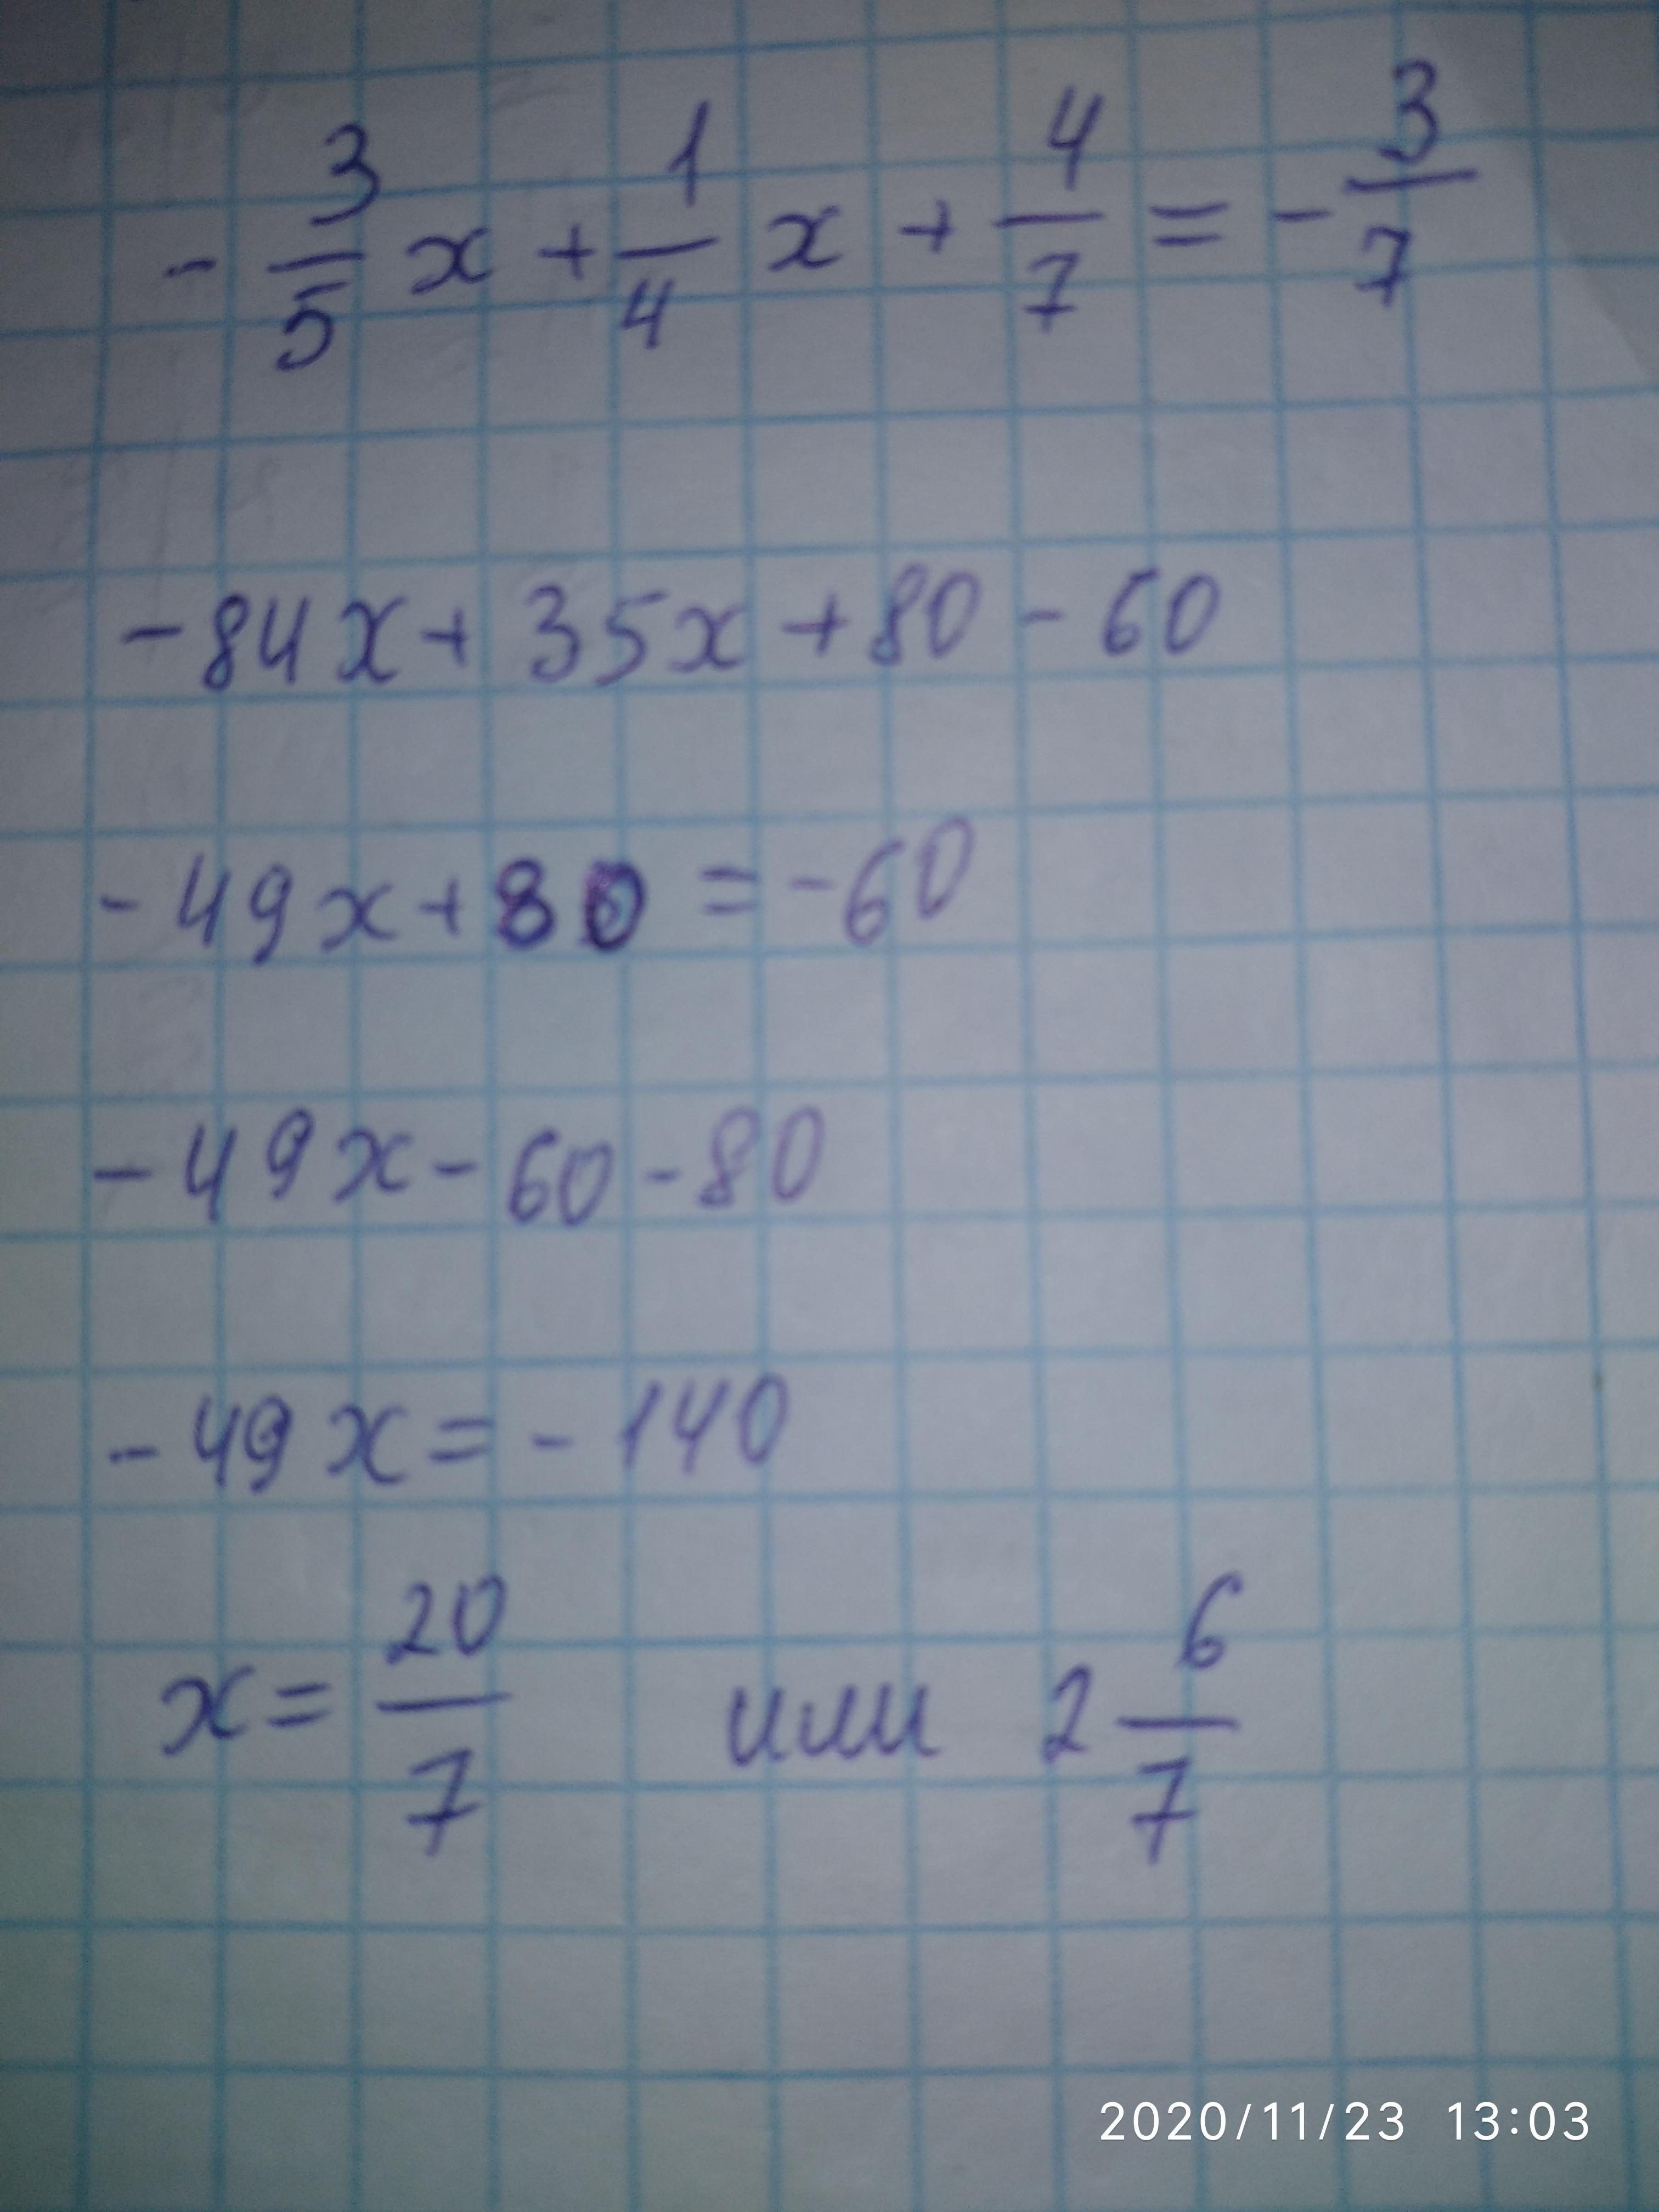 - 3/5 x + 1/4 x + 4/7 = - 3/7
- 84x + 35x + 80 - 60
- 49x + 80 = - 60
- 49x - 60 - 80
- 49x = - 140
x = 20/7 или 2 6/7
2020/11/23 13:03